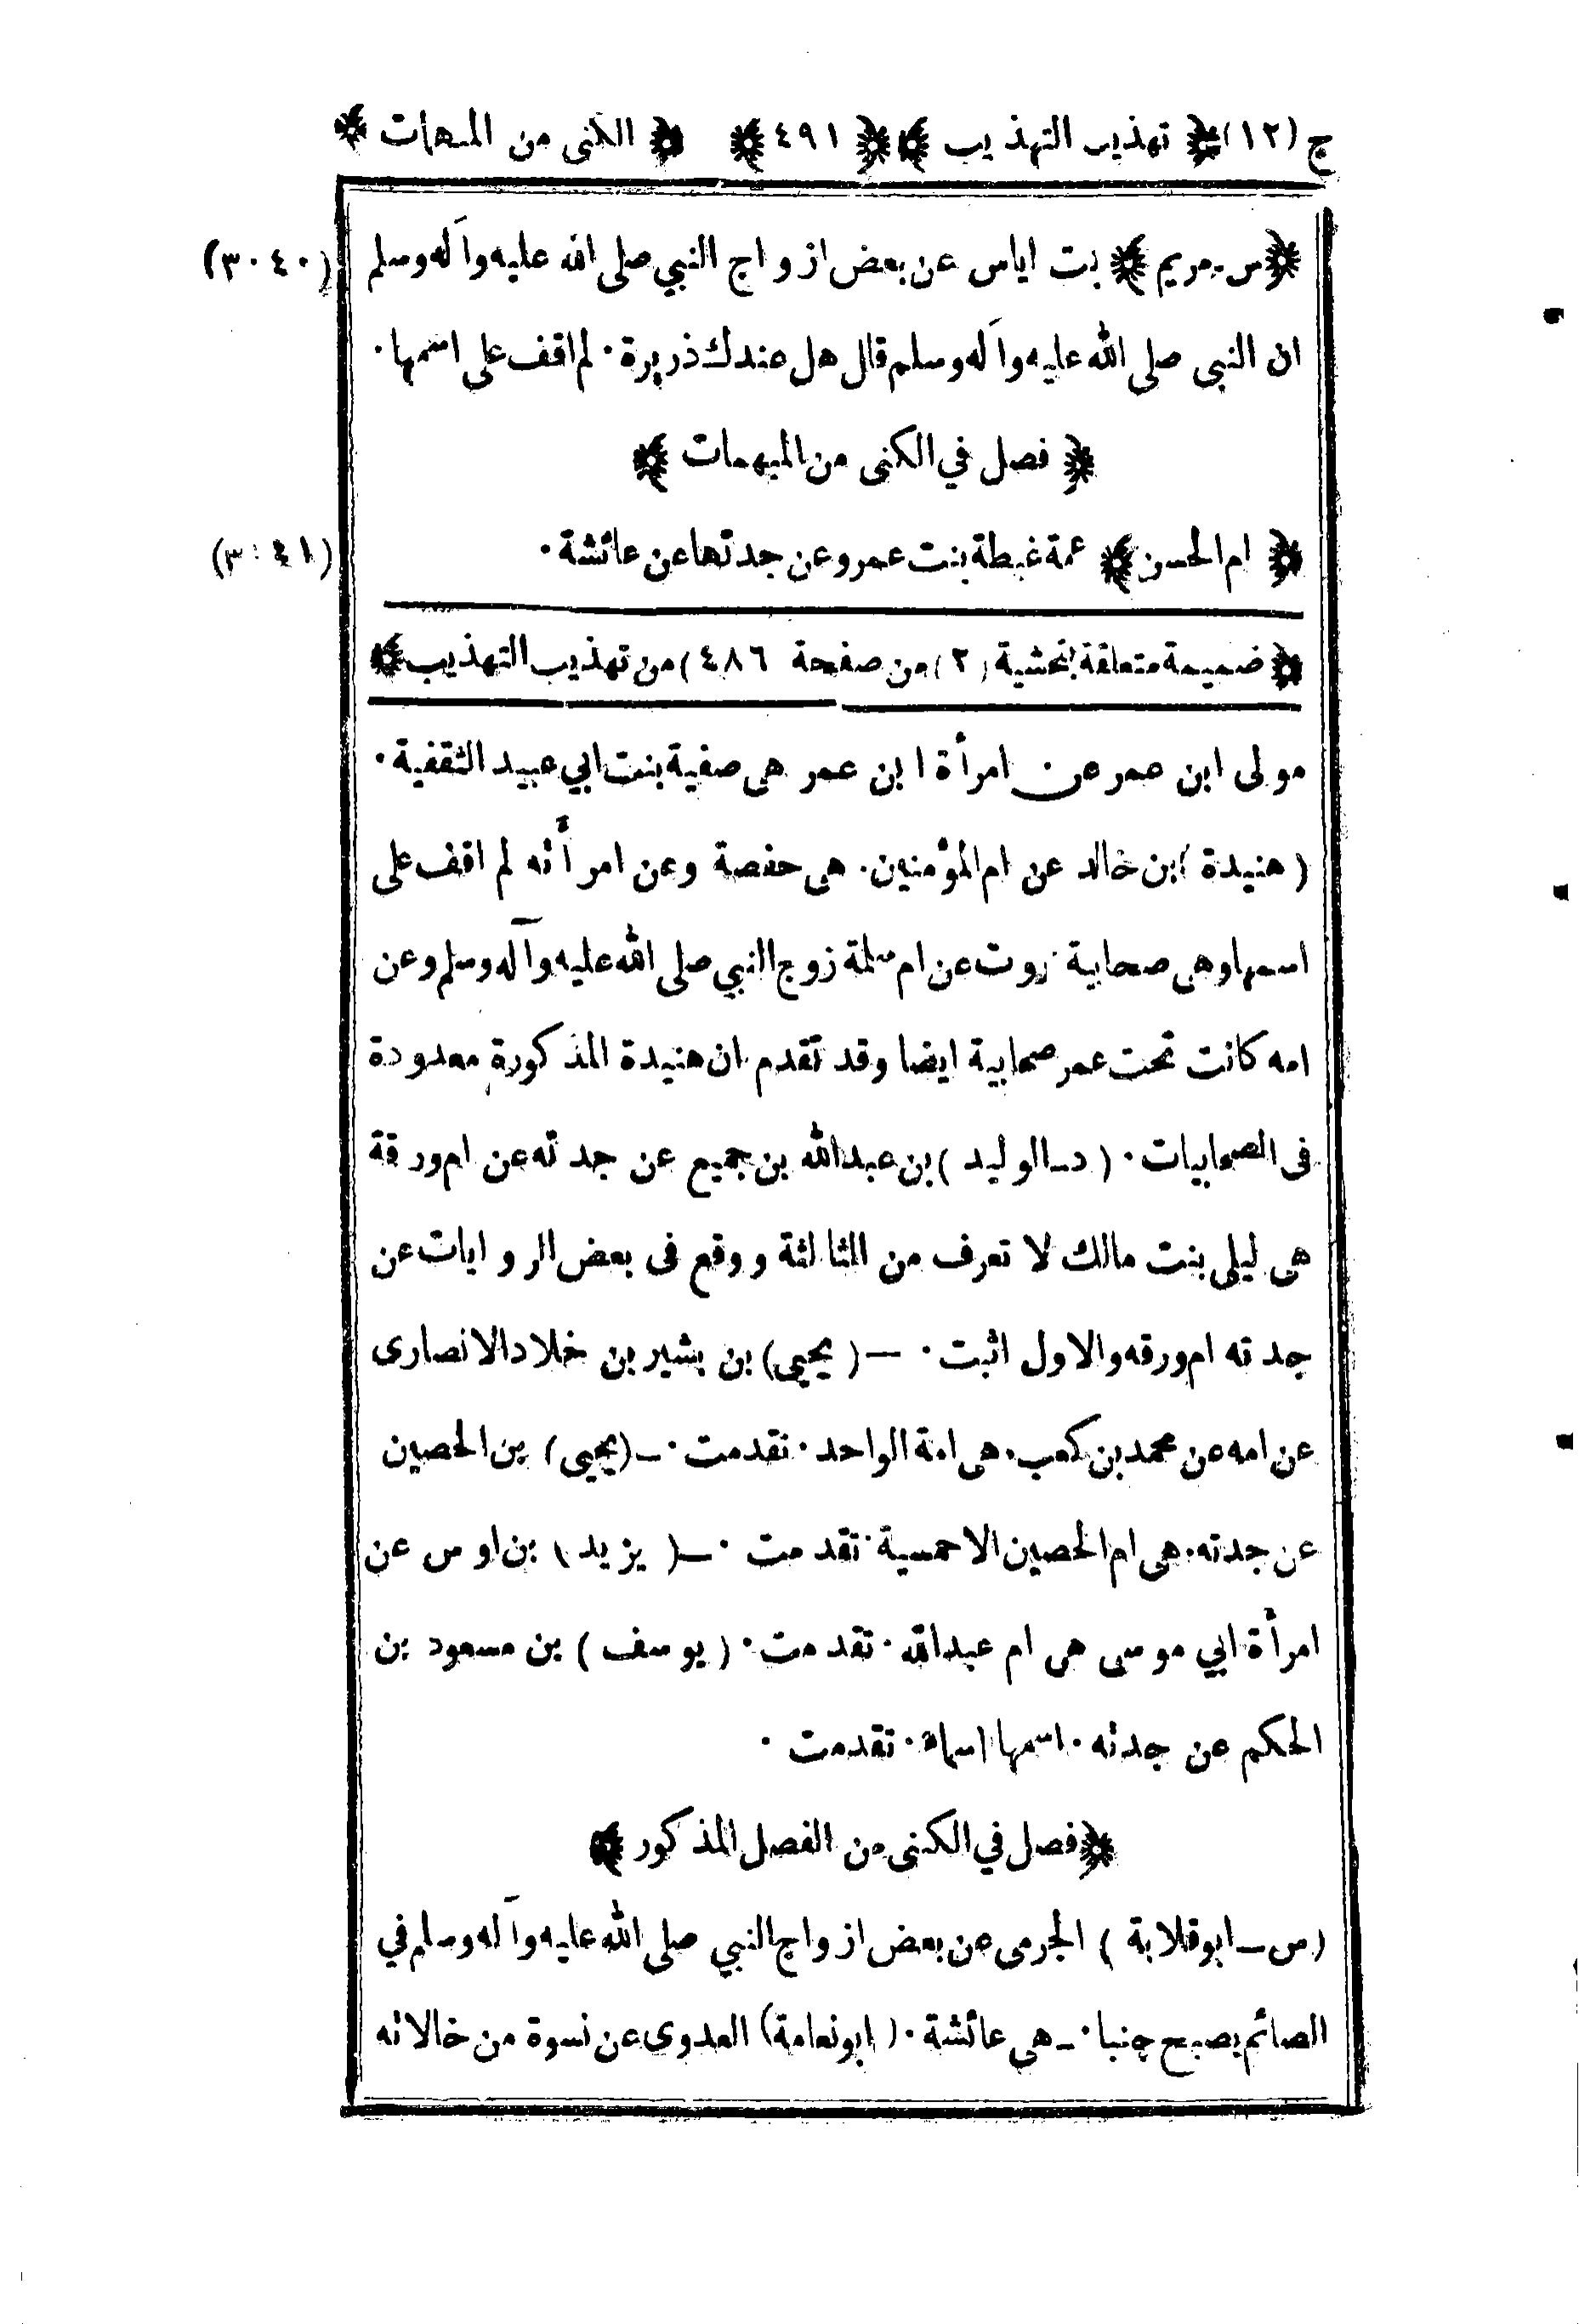 ج (١٢) ﴿ تهذيب التهذيب ﴾ ﴿ ٤٩١ ﴾ ﴿ الكنى من المبهمات ﴾
﴿ س - مريم ﴾ بنت اياس عن بعض ازواج النبي صلى الله عليه وآله وسلم (٣٠٤٠)
ان النبى صلى الله عليه وآله وسلم قال هل عندك ذريرة ٠ لم اقف على اسمها ٠
﴿ فصل في الكنى من المبهمات ﴾
﴿ ام الحسن ﴾ عمة غبطة بنت عمرو عن جدتها عن عائشة ٠ (٣٠٤١)
﴿ ضميمة متعلقة بتحشية (٢) من صفحة ٤٨٦) من تهذيب التهذيب ﴾
مولى ابن عمر عن امرأة ابن عمر هى صفية بنت ابي عبيد الثقفية ٠
(هنيدة) بن خالد عن ام المؤمنين ٠ هى حفصة وعن امرأته لم اقف على
اسمها وهى صحابية روت عن ام سلمة زوج النبي صلى الله عليه وآله وسلم وعن
امه كانت تحت عمر صحابية ايضا وقد تقدم ان هنيدة المذكورة معدودة
فى الصحابيات ٠ (د ـ الوليد) بن عبد الله بن جميع عن جدته عن ام ورقة
هى ليلى بنت مالك لا تعرف من الثالثة ووقع فى بعض الروايات عن
جدته ام ورقه والاول اثبت ٠ ـ (يحيى) بن بشير بن خلاد الانصارى
عن امه عن محمد بن كعب ٠ هى امة الواحد ٠ تقدمت ٠ ـ (يحيى) بن الحصين
عن جدته ٠ هى ام الحصين الاحمسية ٠ تقدمت ٠ ـ (يزيد) بن اوس عن
امرأة ابي موسى هى ام عبد الله ٠ تقدمت ٠ (يوسف) بن مسعود بن
الحكم عن جدته ٠ اسمها اسماء ٠ تقدمت ٠
﴿ فصل في الكنى من الفصل المذكور ﴾
(س ـ ابو قلابة) الجرمى عن بعض ازواج النبي صلى الله عليه وآله وسلم في
الصائم يصبح جنبا ٠ ـ هى عائشة ٠ (ابو نعامة) العدوى عن نسوة من خالاته